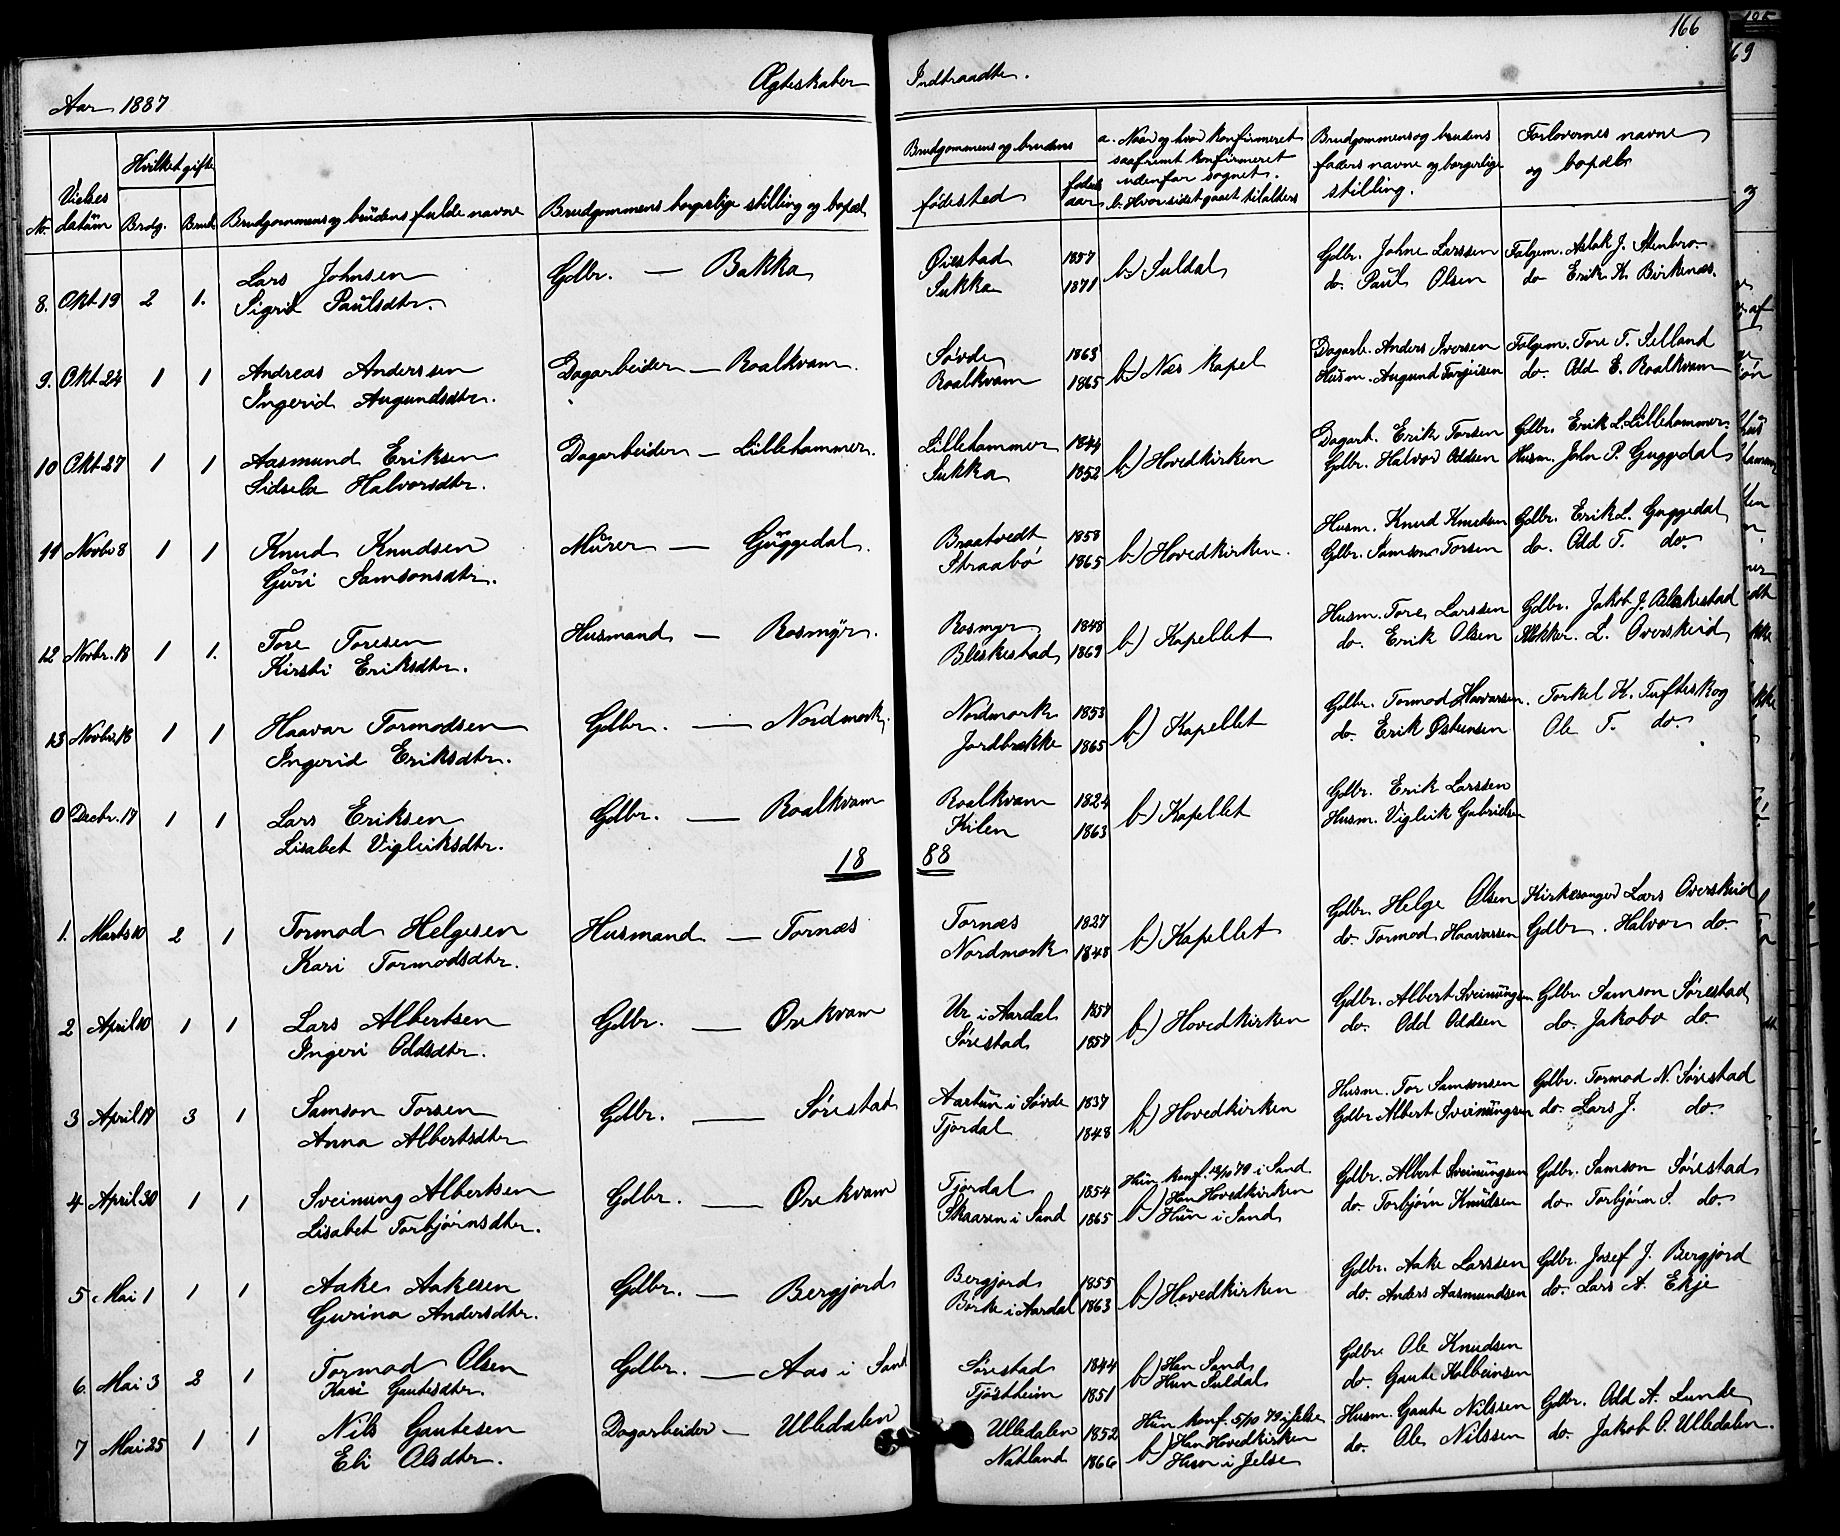 166
Ægteskaber Indtraadte.
Aar 1887
No. Vielses datum Hvilket gifte Brudg. Brud. Brudgommens og brudens fulde navne Brudgommens borgerlige stilling og bopæl Brudgommens og brudens fødested fødselsaar a. Naar og hvor konfirmeret saafremt konfirmeret udenfor sognet. b. Hvor sidst gaaet til alters Brudgommens og brudens faders navne og borgerlige stilling. Forlovernes navne og bopæl
8. Okt 19 2 1. Lars Johnsen Gdbr. — Bakka Øiestad 1857 b) Suldal Gdbr. Johne Larssen Følgem. Aslak J. Stenbro
Sigrid Paulsdtr. Sukka 1871 do. Paul Olsen do Erik K. Birkenæs.
9. Okt 24 1 1 Andreas Anderssen Dagarbeider — Roalkvam. Søvde 1863 b) Næs Kapel Dagarb. Anders Iversen Følgem. Tore T. Selland
Ingerid Augundsdtr. Roalkvam 1865 Husm. Augund Torgeisen do. Odd E. Roalkvam
10 Okt 27 1 1 Aasmund Eriksen Dagarbeider — Lillehammer. Lillehammer 1844 b) Hovedkirken Dagarb. Erik Torsen Gdbr. Erik L. Lillehammer.
Sidsela Halvorsdtr. Sukka 1852 Gdbr. Halvor Oddsen Husm. John P. Guggedal
11 Novbr 8 1 1 Knud Knudsen Murer — Guggedal. Braatvedt 1858 b) Hovedkirken. Husm. Knud Knudsen Gdbr. Erik L. Guggedal
Guri Samsonsdtr. Straabø 1865 Gdbr. Samson Torsen do. Odd T. do.
12 Novbr. 18 1 1. Tore Toresen Husmand — Rosmyr. Rosmyr 1848 b) Kapellet Husm. Tore Larssen Gdbr. Jakob J. Bleskestad
Kirsti Eriksdtr. Bleskestad 1869 do. Erik Olsen Klokker. L. Overskeid
13 Novbr 18 1 1 Haavar Tormodsen Gdbr. — Nordmork. Nordmork 1853 b) Kapellet Gdbr. Tormod Havarsen. Torkel K. Tufteskog
Ingerid Eriksdtr. Jordbrekke 1865 do. Erik Østensen Ole T. do.
0 Decbr. 17 1 1 Lars Eriksen Gdbr. — Roalkvam Roalkvam 1824 b) Kapellet Gdbr. Erik Larssen
Lisabet Vigleiksdtr. Kilen 1863 Husm. Vigleik Gabrielsen
1888
1. Marts 10 2 1 Tormod Helgesen Husmand — Tornæs Tornæs 1827 b) Kapellet Gdbr. Helge Olsen Kirkesanger Lars Overskeid
Kari Tormodsdtr. Nordmork 1848 do. Tormod Haavarsen Gdbr. Halvor do.
2 April 10 1 1 Lars Albertsen Gdbr. — Orekvam Ur i Aardal 1857 b) Hovedkirken Gdbr. Albert Sveinungsen Gdbr. Samson Sørestad
Ingeri Oddsdtr. Sørestad 1857 do. Odd Oddsen do. Jakob do.
3 April 17 3 1 Samson Torsen Gdbr. — Sørestad Aartun i Søvde 1837 b) Hovedkirken Husm. Tor Samsonsen Gdbr. Tormod N. Sørestad
Anna Albertsdtr Fjordal 1848 Gdbr Albert Sveinungsen do. Lars J. do.
4 April 30 1 1 Sveinung Albertsen Gdbr. — Orekvam Fjordal 1854 Hun konf. 12/10 79 i Sand b) Han Hovedkirken Gdbr. Albert Sveinungsen Gdbr. Samson Sørestad
Lisabet Torbjørnsdtr. Skaaren i Sand 1865 Hun i Sand do. Torbjørn Knudsen do. Torbjørn S. do.
5 Mai 1 1 1 Aake Aakesen Gdbr. — Bergjord Bergjord 1855 b) Hovedkirken Gdbr. Aake Larssen Gdbr. Josef J. Bergjord
Gurina Andersdtr. Børke i Aardal 1863 do. Anders Aasmundsen do. Lars A. Ekje
6. Mai 3 2 1 Tormod Olsen Gdbr. — Aas i Sand Sørestad 1844 b) Han Sand Gdbr Ole Knudsen
Kari Gautesdtr. Tjøstheim 1851 Hun Suldal do. Gaute Kolbeinsen
7 Mai 25 1 1 Nils Gautesen Dagarbeider — Ulledalen Ulledalen 1852 Hun konf. 5/10 79 i Jelse b) Han Hovedkirken Husm. Gaute Nilssen Gdbr. Odd A. Lunde
Eli Olsdtr. Natland 1866 Hun i Jelse do. Ole Nilssen do. Jakob O. Ulledalen.